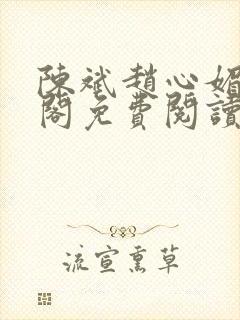 陳斌趙心媚
閣免費閱讀
流宣熏草